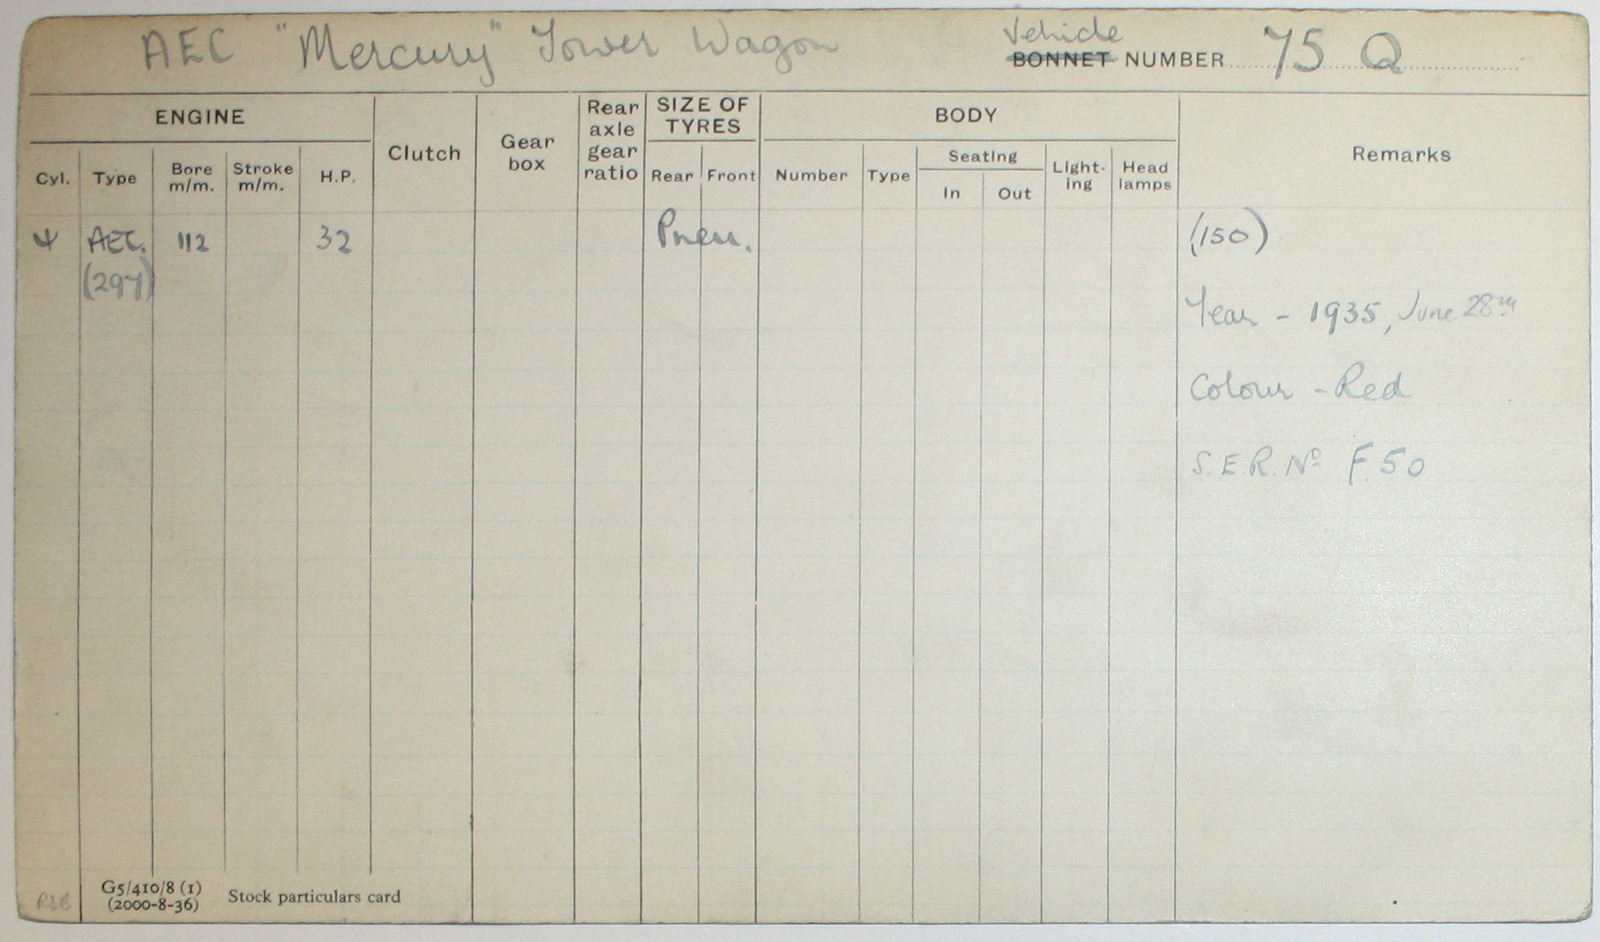 AEC "Mercury" Tower Wagon
Vehicle
BONNET NUMBER 75 Q
ENGINE
Clutch
Gear box
Rear axle gear ratio
SIZE OF TYRES
BODY
Remarks
Cyl.
Type
Bore m/m.
Stroke m/m.
H.P.
Rear
Front
Number
Type
Seating
In
Out
Light-ing
Head lamps
4 AEC. 112 32 Pneu. (150)
(297)
Year - 1935, June 28th
Colour - Red
S.E.R. No F.50
G5/410/8 (1)
(2000-8-36)
Stock particulars card